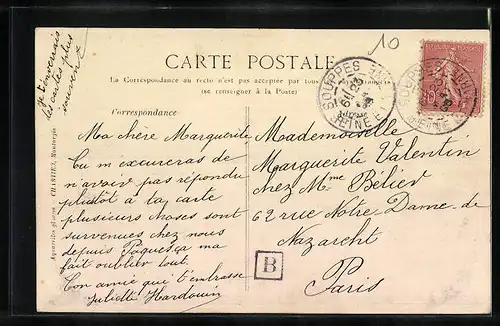 je t'enverrais
les cartes plus
souvent
10
CARTE POSTALE
La Correspondance au recto n'est pas acceptée par tous
(se renseigner à la Poste)
Correspondance
Ma chère Marguerite,
Tu m'excuseras de
n'avoir pas répondu
plutôt à ta carte
plusieurs choses sont
survenues chez nous
depuis Pâques ça m'a
fait oublier tout.
Ton amie qui t'embrasse
Juliette Hardouin
Mademoiselle
Marguerite Valentin
chez Mme Bélier
62 rue Notre Dame de
Nazareht
Paris
B
SOUPPES
SEINE